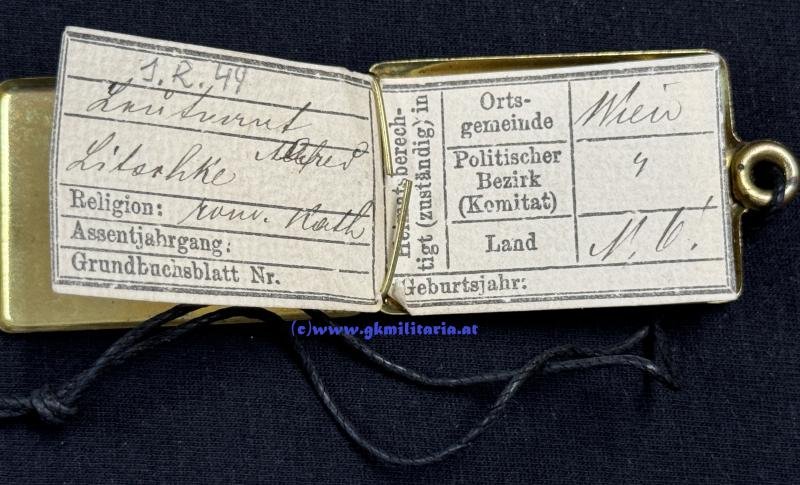 J. R. 49
Leutnant
Alfred
Litschke
Religion: rom. Kath
Assentjahrgang:
Grundbuchsblatt Nr.
Heimatsberech-
tigt (zuständig) in
Orts-
gemeinde
Wien
Politischer
Bezirk
(Komitat)
"
Land
N. Ö.
Geburtsjahr:
(c)www.gkmilitaria.at